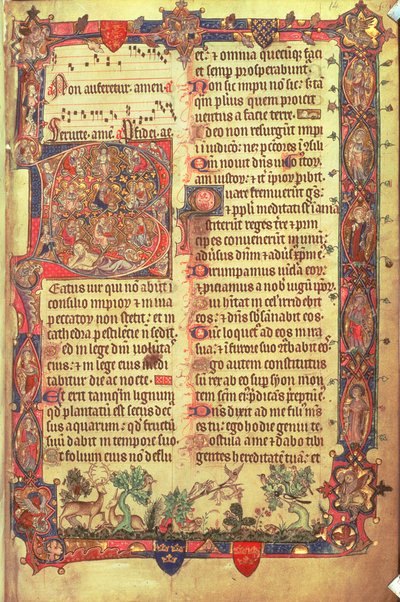 Non auferetur. amen. a
Seruite. amē. a
Eatus uir qui nō abiit ī
consilio impioꝝ et in uia
peccatoꝝ non stetit: et in
cathedra pestilēcie nō sedit.
Sed in lege dnī uolūtas
eius: et in lege eius medi
tabitur die ac nocte.
Et erit tamqm lignum
qd plantatū est secus decur
sus aquarum: qd fructū
suū dabit in tempore suo
Et folium eius nō deflu
et: et omnia quecūqꝫ faci
et semp prosperabunt.
Non sic impii nō sic: set tā
qm pluis quem proicit
uentus a facie terre.
Ideo non resurgūt impii
ī iudicō: neqꝫ pctores ī
Qm nouit dns
iustoꝝ: et
Quare fremuerūt
et ppli meditati st ī ania
Astiterūt reges tre et prin
cipes conuenerūt in unū:
adūsus dnm et adūs xpm
Dirumpamus uīcla eoꝝ:
et piciamus a nob iugū ipoꝝ
Qui hītat in cel irridebit
eos: et dns sbsānabit eos.
Tunc loquet ad eos in ira
sua: et ī furore suo ɔtbabit eos
Ego autem constitutus
sū rex ab eo sup syon mon
tem scm ei pdicās pceptū
Dns dixit ad me filius ms
es tu: ego hodie genui te
Postula a me et dabo tibi
gentes hereditatē tuā: et